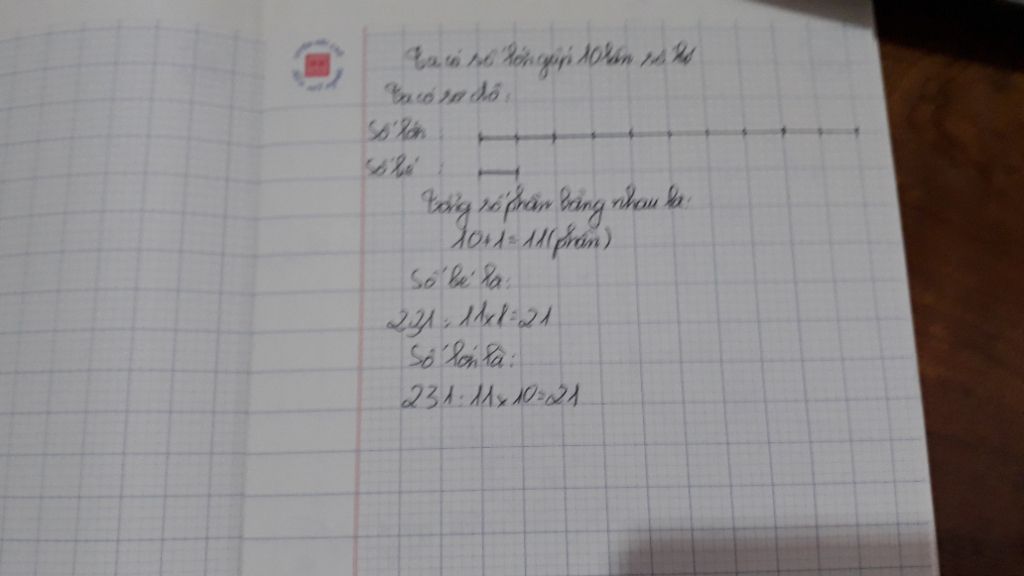 Ta có số lớn gấp 10 lần số bé
Ta có sơ đồ:
Số lớn :
Số bé :
Tổng số phần bằng nhau là:
10+1=11(phần)
Số bé là:
231 : 11x1=21
Số lớn là:
231:11x10=21